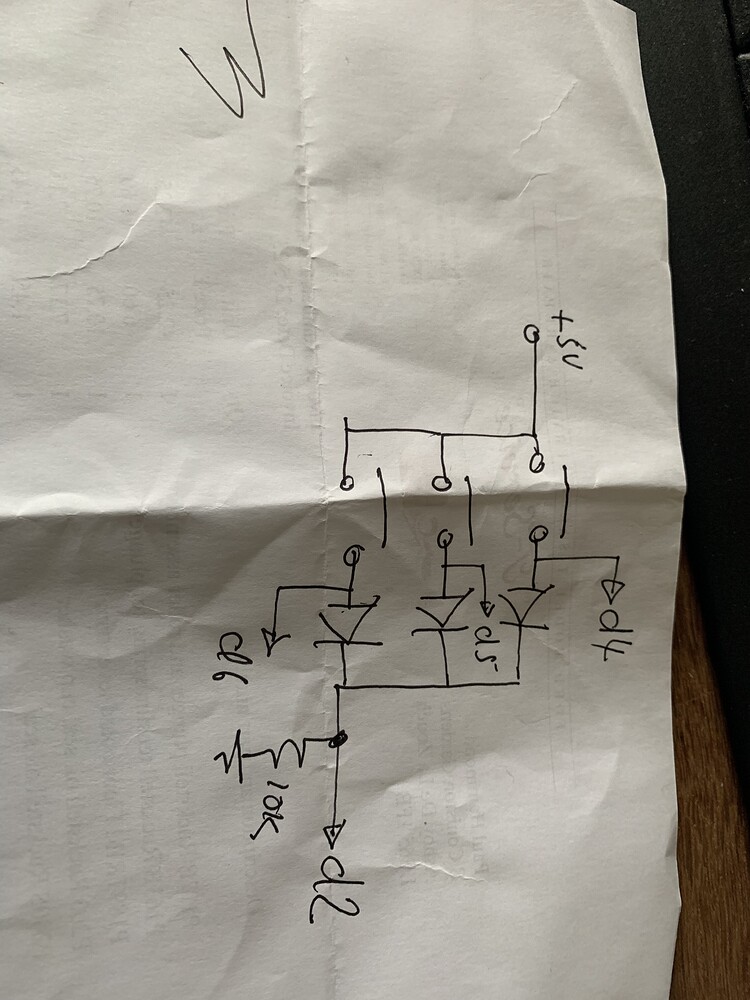 +5V
d4
d5
d6
10K
d2